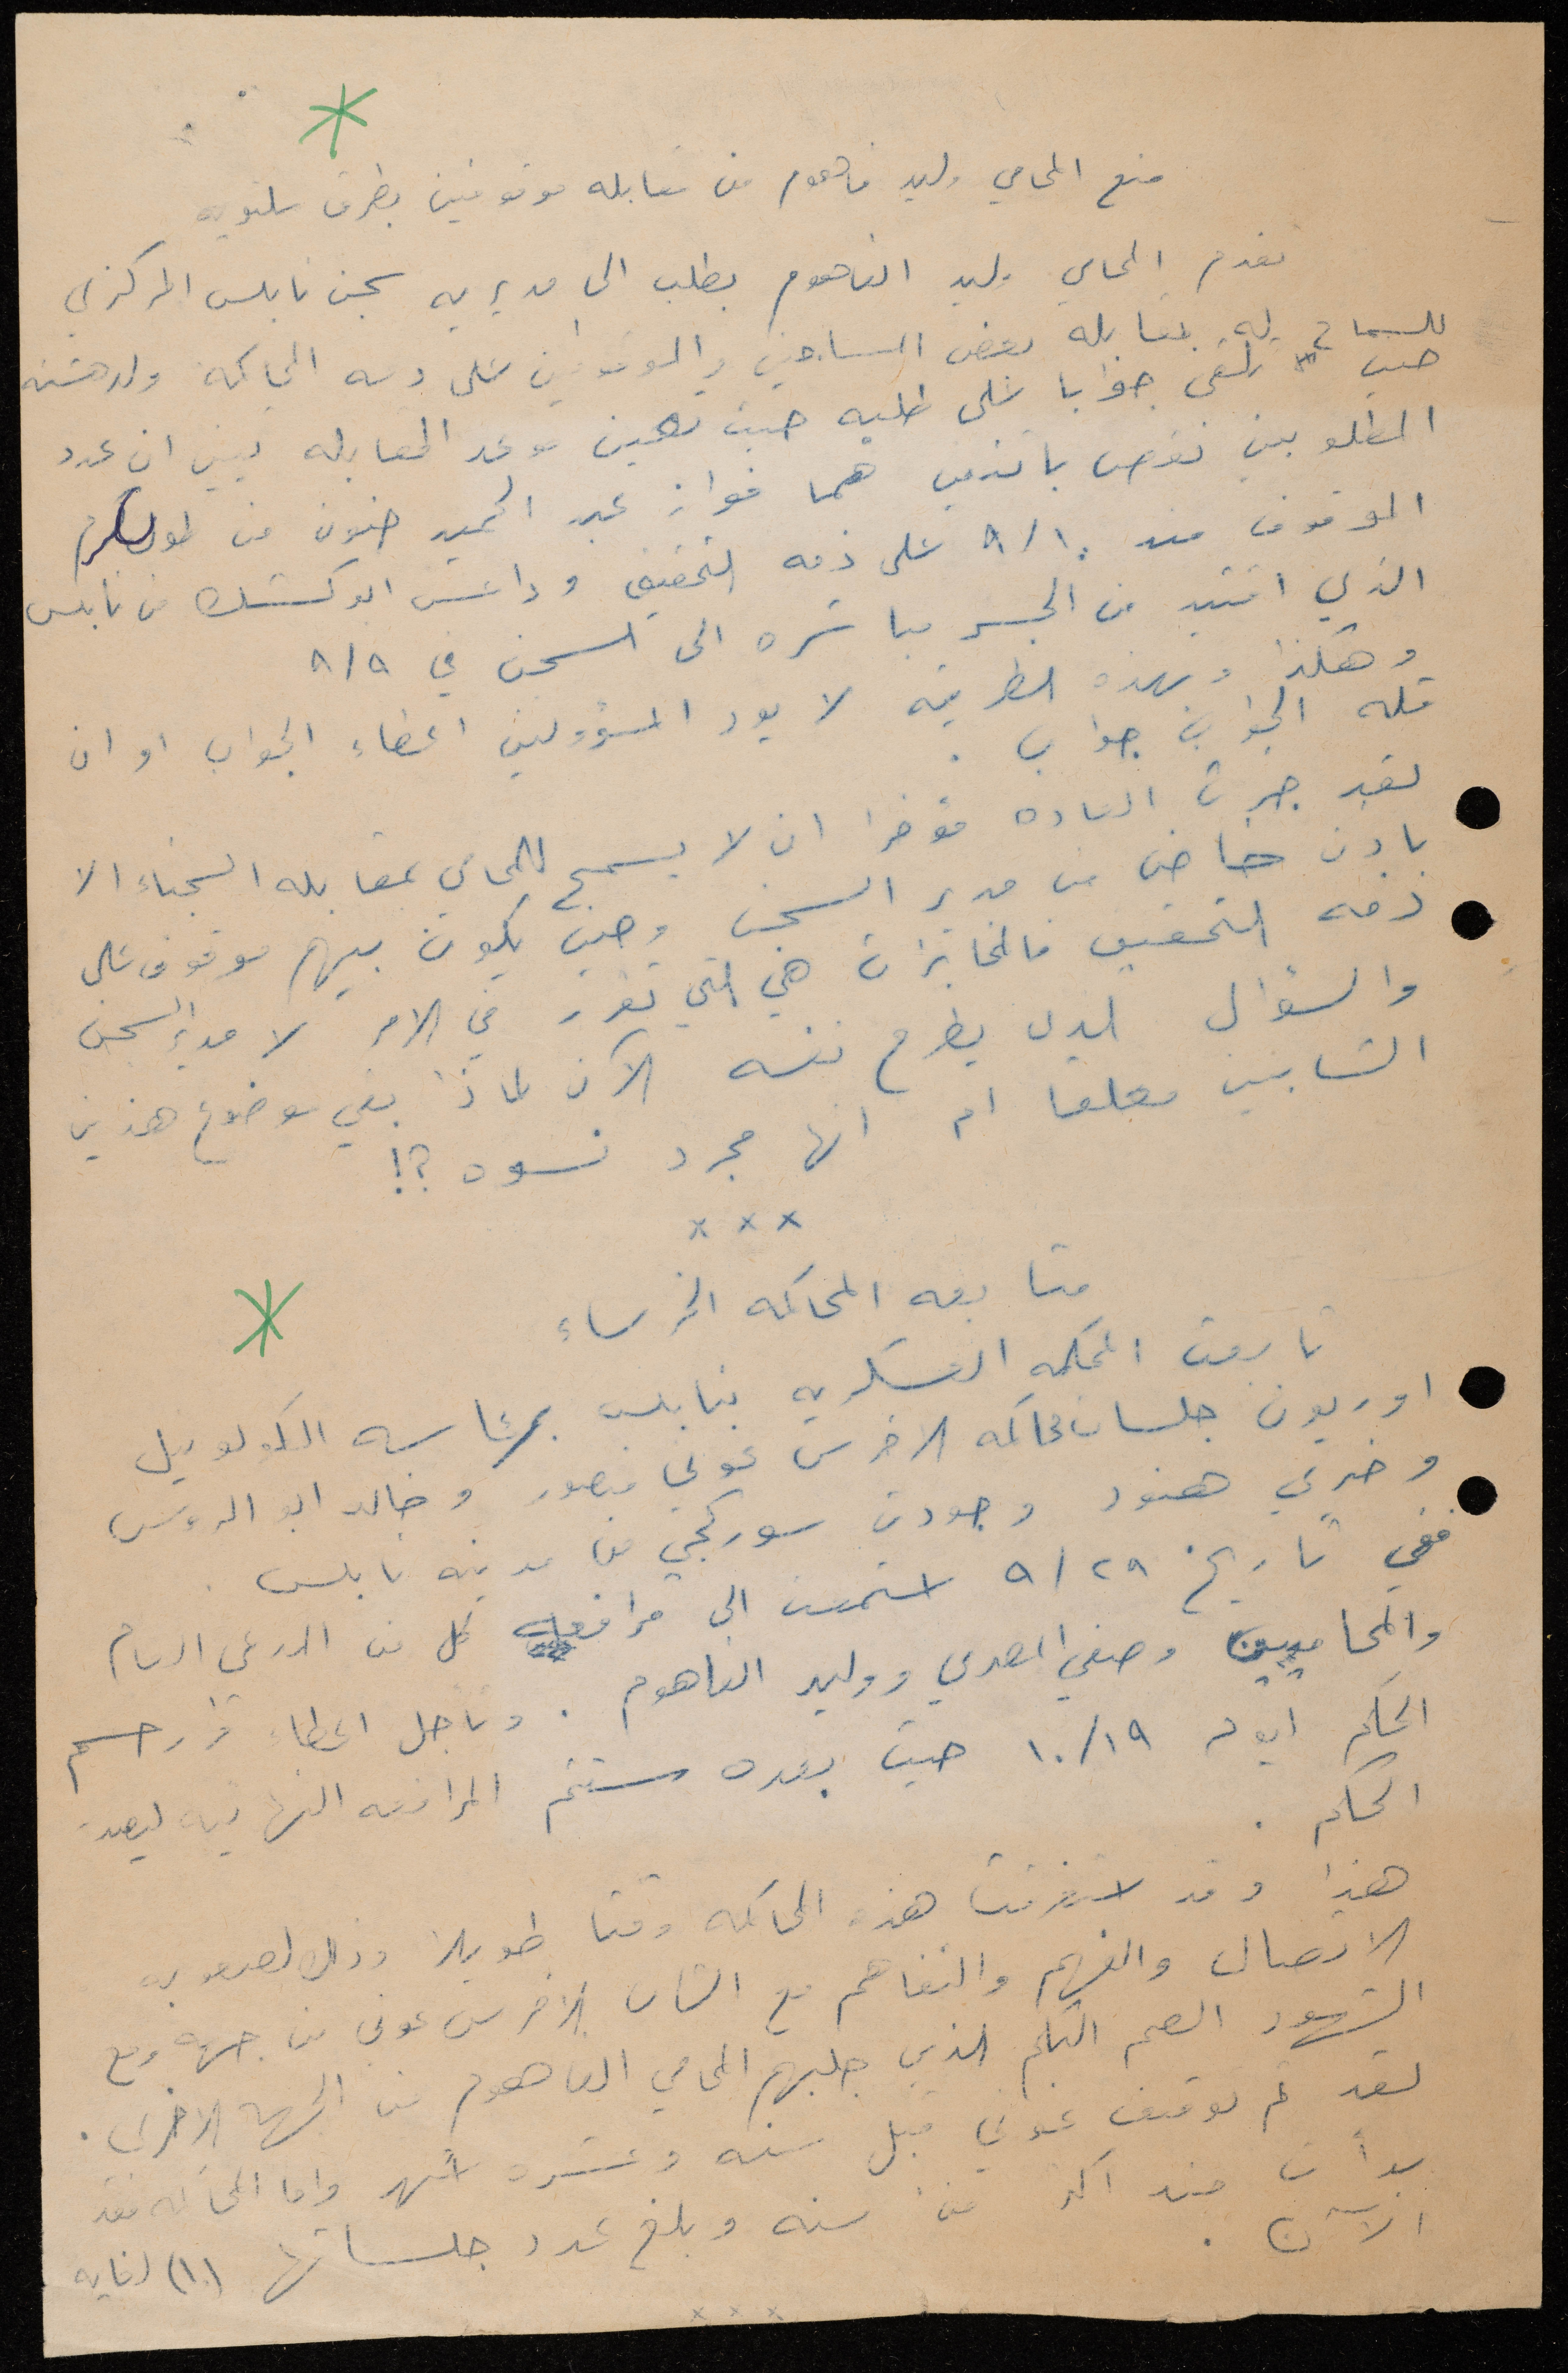 منع المحامي وليد فاهوم من مقابله موقوفين بطرق ملتويه
تقدم المحامي وليد الفاهوم بطلب الى مديريه سجن نابلس المركزي
للسماح له بمقابله بعض المساجين والموقوفين على ذمه المحاكمه ولدهشته
حين تلقى جوابا على طلبه حيث تعين موعد المقابله تبين ان عدد
المطلوبين نقص باثنين هما فواز عبد الحميد حنون من طولكرم
الموقوف منذ ٨/١٠ على ذمه التحقيق وداعس ابو كشك من نابلس
الذي اقتيد من الجسر مباشره الى السجن في ٨/٩
وهكذا وبهذه الطريقه لا يود المسؤولين اعطاء الجواب او ان
قله الجواب جواب .
لقد جرت العاده مؤخرا ان لا يسمح للمحامي بمقابله السجناء الا
باذن خاص من مدير السجن وحين يكون بينهم موقوف على
ذمه التحقيق فالمخابرات هي التي تقرر في الامر لا مدير السجن
والسؤال الذي يطرح نفسه الآن لماذا بقي موضوع هذين
الشابين معلقا ام انها مجرد نسوه ؟!
× × ×
متابعه المحاكمه الخرساء
تابعت المحكمه العسكريه بنابلس برئاسه الكولونيل
اوريون جلسات محاكمه الاخرس عوني منصور وخالد ابو الروس
وخيري هنود وجودت سوركجي من مدينه نابلس .
ففي تاريخ ٩/٢٩ استمعت الى مرافعه كل من المدعي العام
والمحاميين وصفي المصري ووليد الفاهوم . وتأجل اعطاء قرار حسم
الحكم ليوم ١٠/١٩ حيث بعده ستتم المرافعه النهائيه ليصدر
الحكم .
هذا وقد استغرقت هذه المحاكمه وقتا طويلا وذلك لصعوبه
الاتصال والفهم والتفاهم مع الشاب الاخرس عوني من جهه ومع
الشهود الصم البكم الذين جلبهم المحامي الفاهوم من الجهه الاخرى .
لقد تم توقيف عوني قبل سنه وعشره اشهر واما المحاكمه فقد
بدأت منذ اكثر من سنه وبلغ عدد جلساتها (١٠) لغايه
الآن .
× × ×